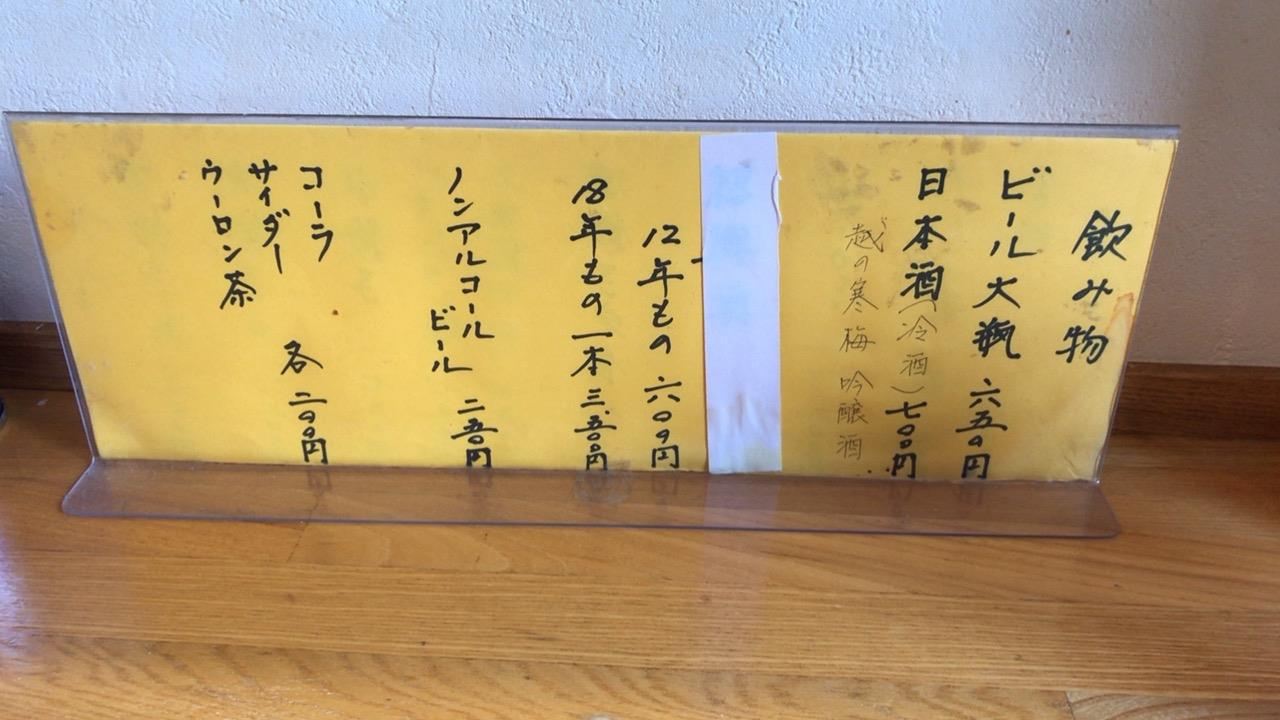 飲み物
ビール大瓶 六五〇円
日本酒(冷酒)七〇〇円
越の寒梅 吟醸酒
12年もの 六〇〇円
18年もの一本 三、五〇〇円
ノンアルコール
ビール 二五〇円
コーラ
サイダー
ウーロン茶
各 二〇〇円